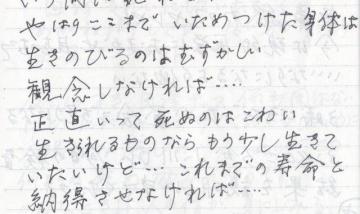 やはりここまで いためつけた身体は
生きのびるのはむずかしい
観念しなければ‥‥
正直いって死ぬのはこわい
生きられるものなら もう少し生きて
いたいけど… これまでの寿命と
納得させなければ‥‥